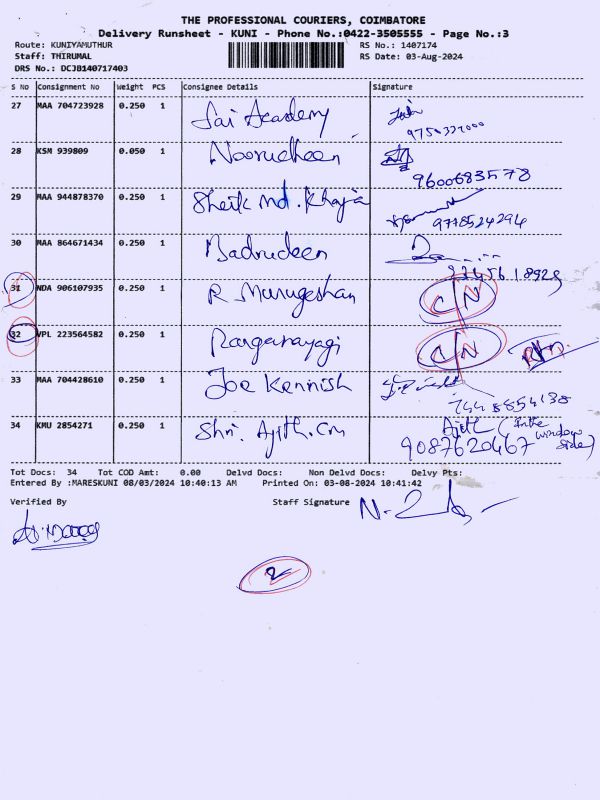 THE PROFESSIONAL COURIERS, COIMBATORE
Delivery Runsheet - KUNI - Phone No.:0422-3505555 - Page No.:3
Route: KUNIYAMUTHUR RS No.: 1407174
Staff: THIRUMAL RS Date: 03-Aug-2024
DRS No.: DCJB140717403
S No Consignment No Weight PCS Consignee Details Signature
27 MAA 704723928 0.250 1 Sai Academy
28 KSM 939809 0.050 1 Noorudheen
9600683578
29 MAA 944878370 0.250 1 Sheik Md. Khaja
9778524294
30 MAA 864671434 0.250 1 Badrudeen
31 NDA 906107935 0.250 1 R Murugeshan C/N
32 VPL 223564582 0.250 1 Ranganayagi C/N
33 MAA 704428610 0.250 1 Joe Kennish
7448854138
34 KMU 2854271 0.250 1 Shri. Ajith.cm Ajith (In the window side)
9087620467
Tot Docs: 34 Tot COD Amt: 0.00 Delvd Docs: Non Delvd Docs: Delvy Pts:
Entered By :MARESKUNI 08/03/2024 10:40:13 AM Printed On: 03-08-2024 10:41:42
Verified By Staff Signature
2